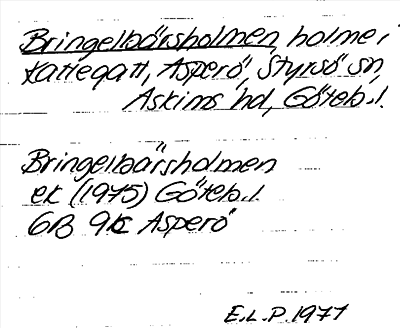 Bringelbärsholmen, holme i
Kattegatt, Asperö, Styrsö sn,
Askims hd, Göteb.l.
Bringelbärsholmen
ek (1975) Göteb.l.
6B 9k Asperö
E.L.P. 1977